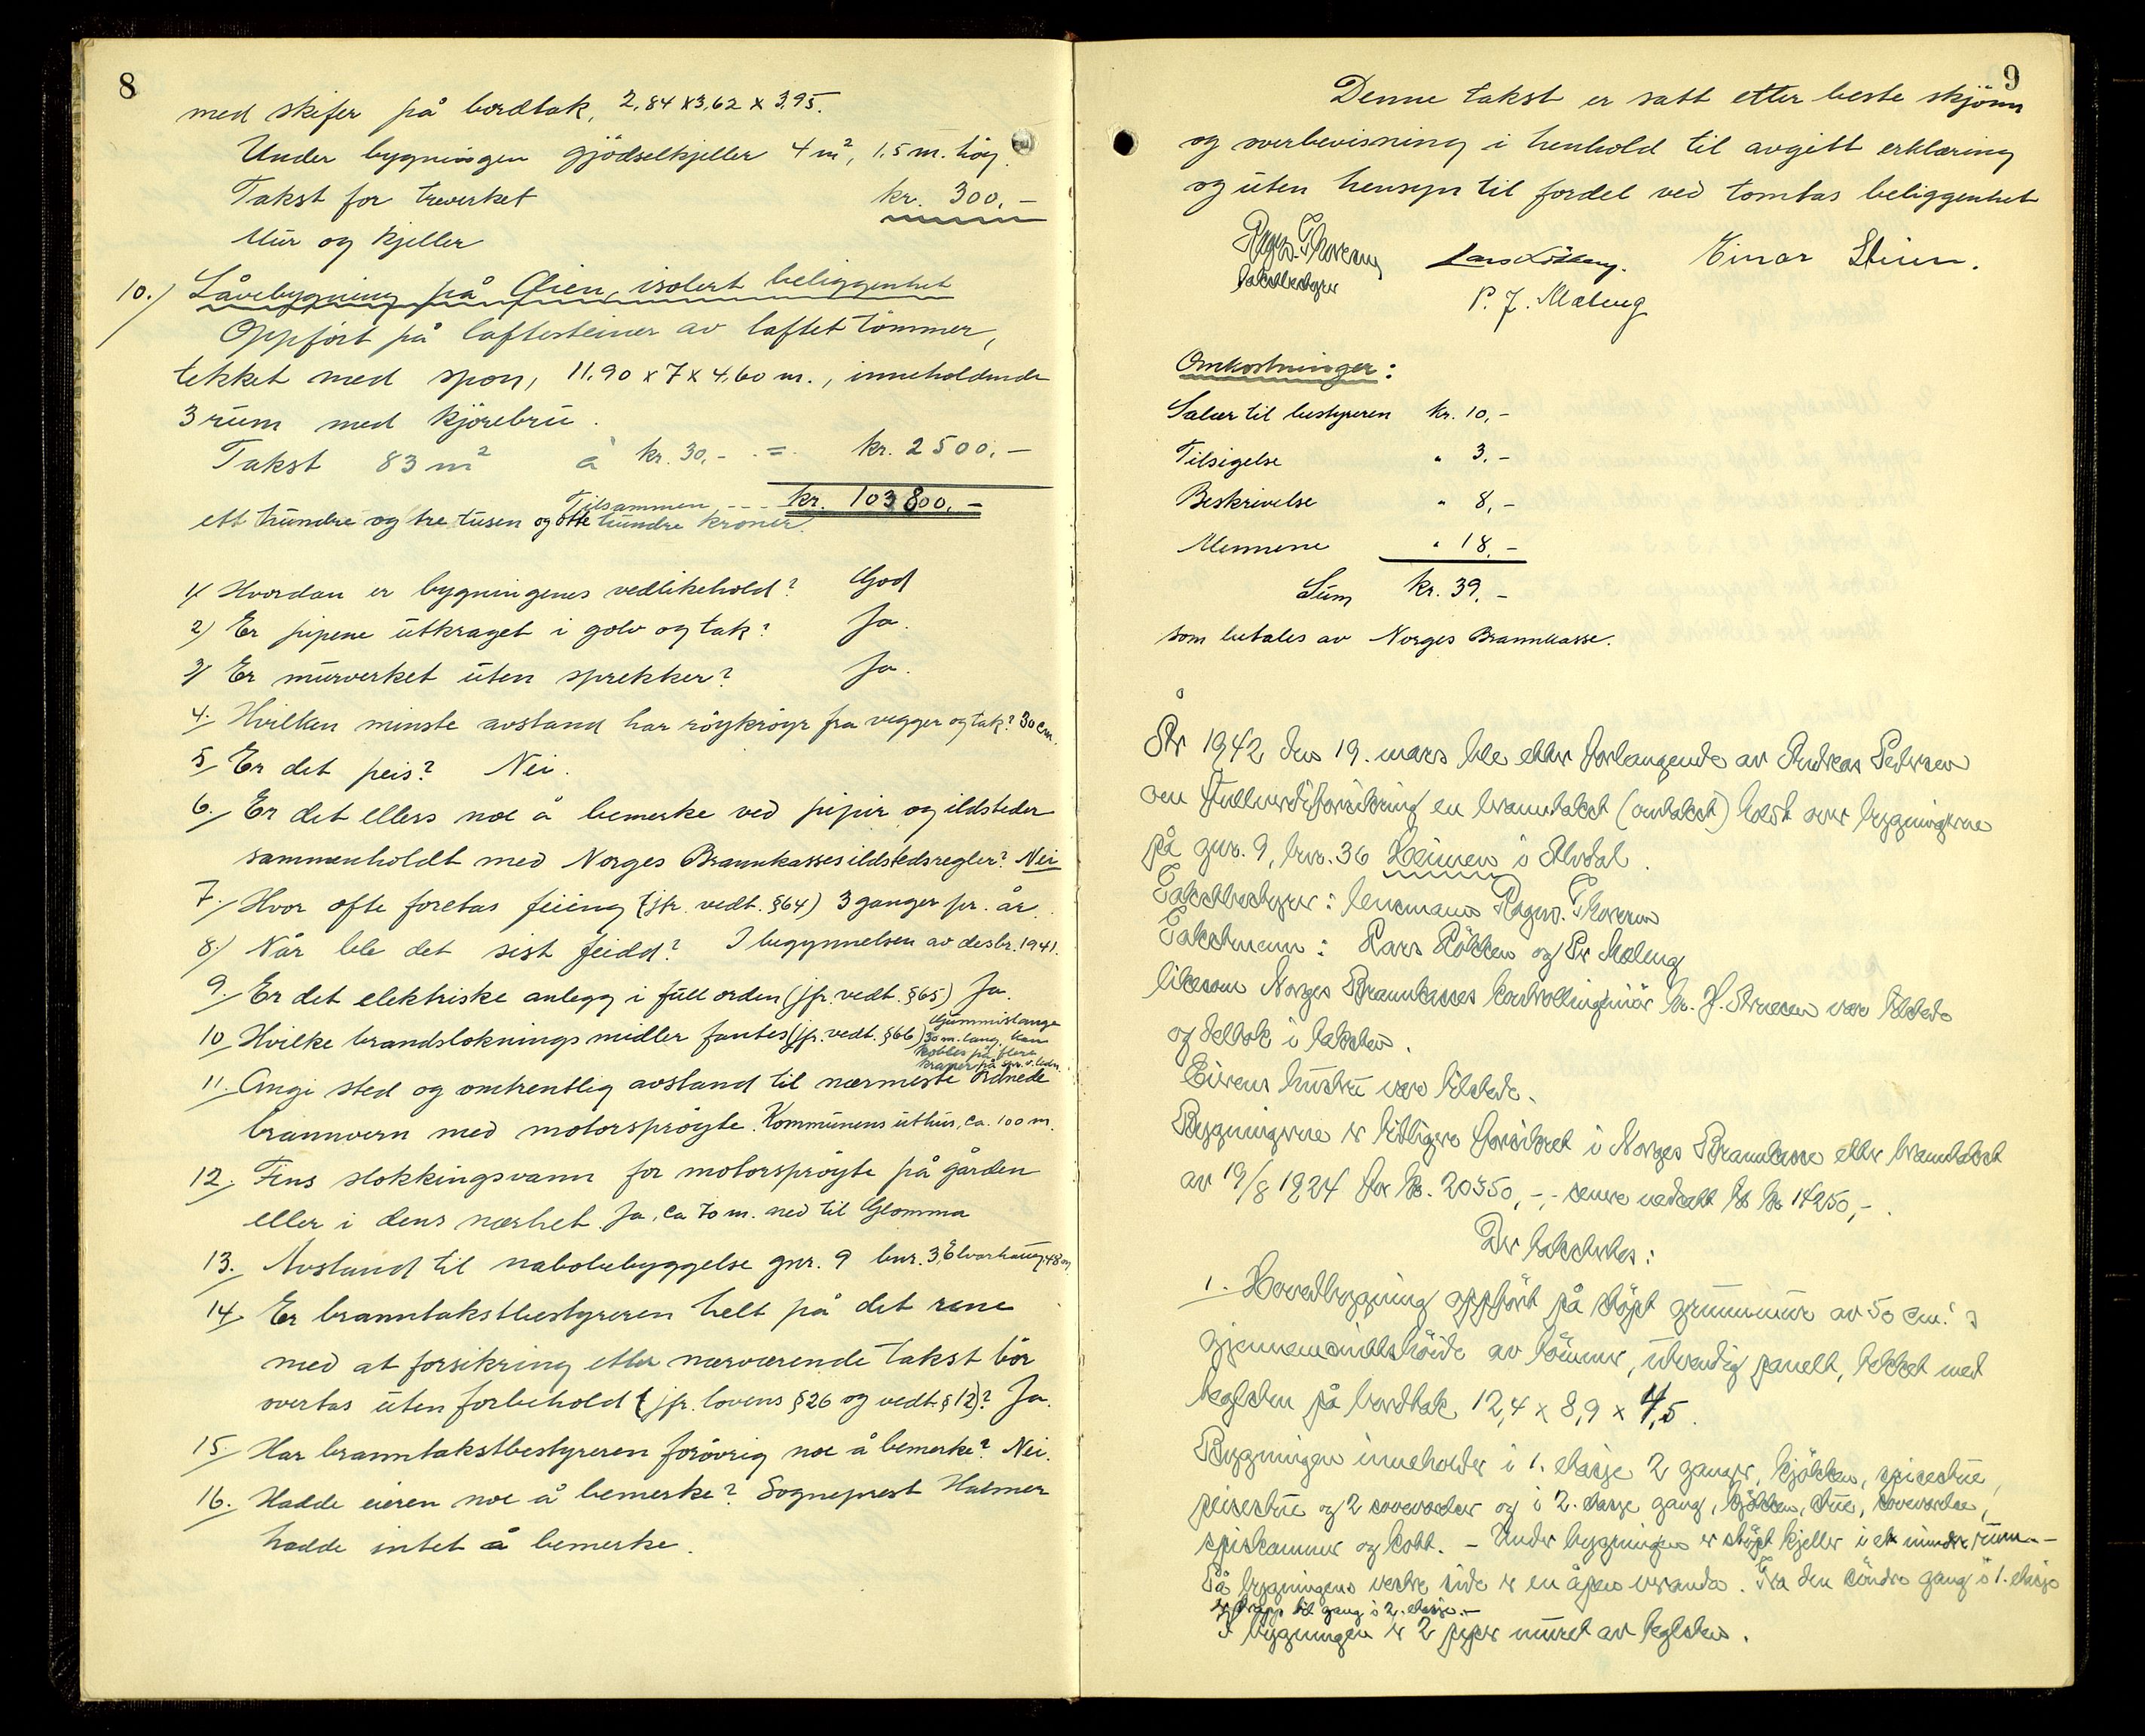 8
med skifer på bordtak, 2,84 x 3,62 x 3,95.
Under bygningen gjödselkjeller 4 m², 1.5 m. höy.
Takst for treverket kr. 300.-
Mur og kjeller
10./ Låvebygning på Öien, isolert beliggenhet
Oppfört på laftesteiner av laftet tömmer,
tekket med spon, 11.90 x 7 x 4,60 m., inneholdende
3 rum med kjörebru.
Takst 83 m² à kr. 30,- = kr. 2500.-
Tilsammen --- kr. 103800.-
ett hundre og tre tusen og otte hundre kroner.
1/ Hvordan er bygningenes vedlikehold? God
2) Er pipene utkraget i golv og tak? Ja.
3/ Er murverket uten sprekker? Ja.
4. Hvilken minste avstand har röykröyr fra vegger og tak? 30 cm.
5/ Er det peis? Nei.
6./ Er det ellers noe å bemerke ved piper og ildsteder
sammenholdt med Norges Brannkasses ildstedsregler? Nei
7./ Hvor ofte foretas feiing (jfr. vedt. §64) 3 ganger pr. år.
8./ Når ble det sist feidd? I begynnelsen av desbr. 1941.
9./ Er det elektriske anlegg i full orden (jfr. vedt. §65) Ja.
10 Hvilke brandsloknings midler fantes (jfr. vedt. §66) Gummislange
30 m. lang. kan
kobles på flere
kraner på
11. Angi sted og omtrentlig avstand til nærmeste ordnede
brannvern med motorspröyte. Kommunens uthus, ca. 100 m.
12. Fins slokkingsvann for motorspröyte på gården
eller i dens nærhet. Ja, ca 70 m. ned til Glomma
13. Avstand til nabobebyggelse gnr. 9 bnr. 3, 48 m.
14/ Er branntakstbestyreren helt på det rene
med at forsikring etter nærværende takst bör
overtas uten forbehold (jfr. lovens §26 og vedt. §12)? Ja.
15. Har branntakstbestyreren forövrig noe å bemerke? Nei.
16. Hadde eieren noe å bemerke? Sogneprest Halmer
hadde intet å bemerke.
9
Denne takst er satt etter beste skjönn
og overbevisning i henhold til avgitt erklæring
og uten hensyn til fordel ved tomtas beliggenhet
Ragn. Thoresen Einar Stuen.
takstbestyrer P. J. Mæleng
Omkostninger:
Salær til bestyreren kr. 10,-
Tilsigelse " 3.-
Beskrivelse " 8,-
Mennene " 18.-
Sum kr. 39.-
som betales av Norges Brannkasse.
År 1942 den 19. mars ble etter forlangende av Andreas Pedersen
om fullverdiforsikring en branntakst (omtakst) holdt over bygningerne
på gnr. 9, bnr. 36 Heimen i Alvdal.
Takstbestyrer: lensmann Ragn. Thoresen
Takstmenn: Lars Lökken og Pr Mæleng
likesom Norges Brannkasses kontrollingeniör hr. var tilstede
og deltok i taksten.
Eierens hustru var tilstede.
Bygningerne er tidligere forsikret i Norges Brannkasse etter branntakst
av 19/8 1924 for kr. 20350,-, senere nedsatt til kr 14250,-.
Der takstertes:
1. Hovedbygning oppfört på stöpt grunnmur av 50 cm.s
gjennemsnittshöide av tömmer, utvendig panelt, tekket med
teglsten på bordtak 12,4 x 8,9 x 4,5.
Bygningen inneholder i 1. etasje 2 ganger, kjökken, spisestue,
peisestue og 2 soveværelser og i 2. etasje gang, kjökken, stue, soveværelse,
spiskammer og kott. - Under bygningen er stöpt kjeller i et mindre rum. -
På bygningens vestre side er en åpen veranda. Fra den söndre gang i 1. etasje
er trapp til gang i 2. etasje. -
I bygningen er 2 piper muret av teglsten.